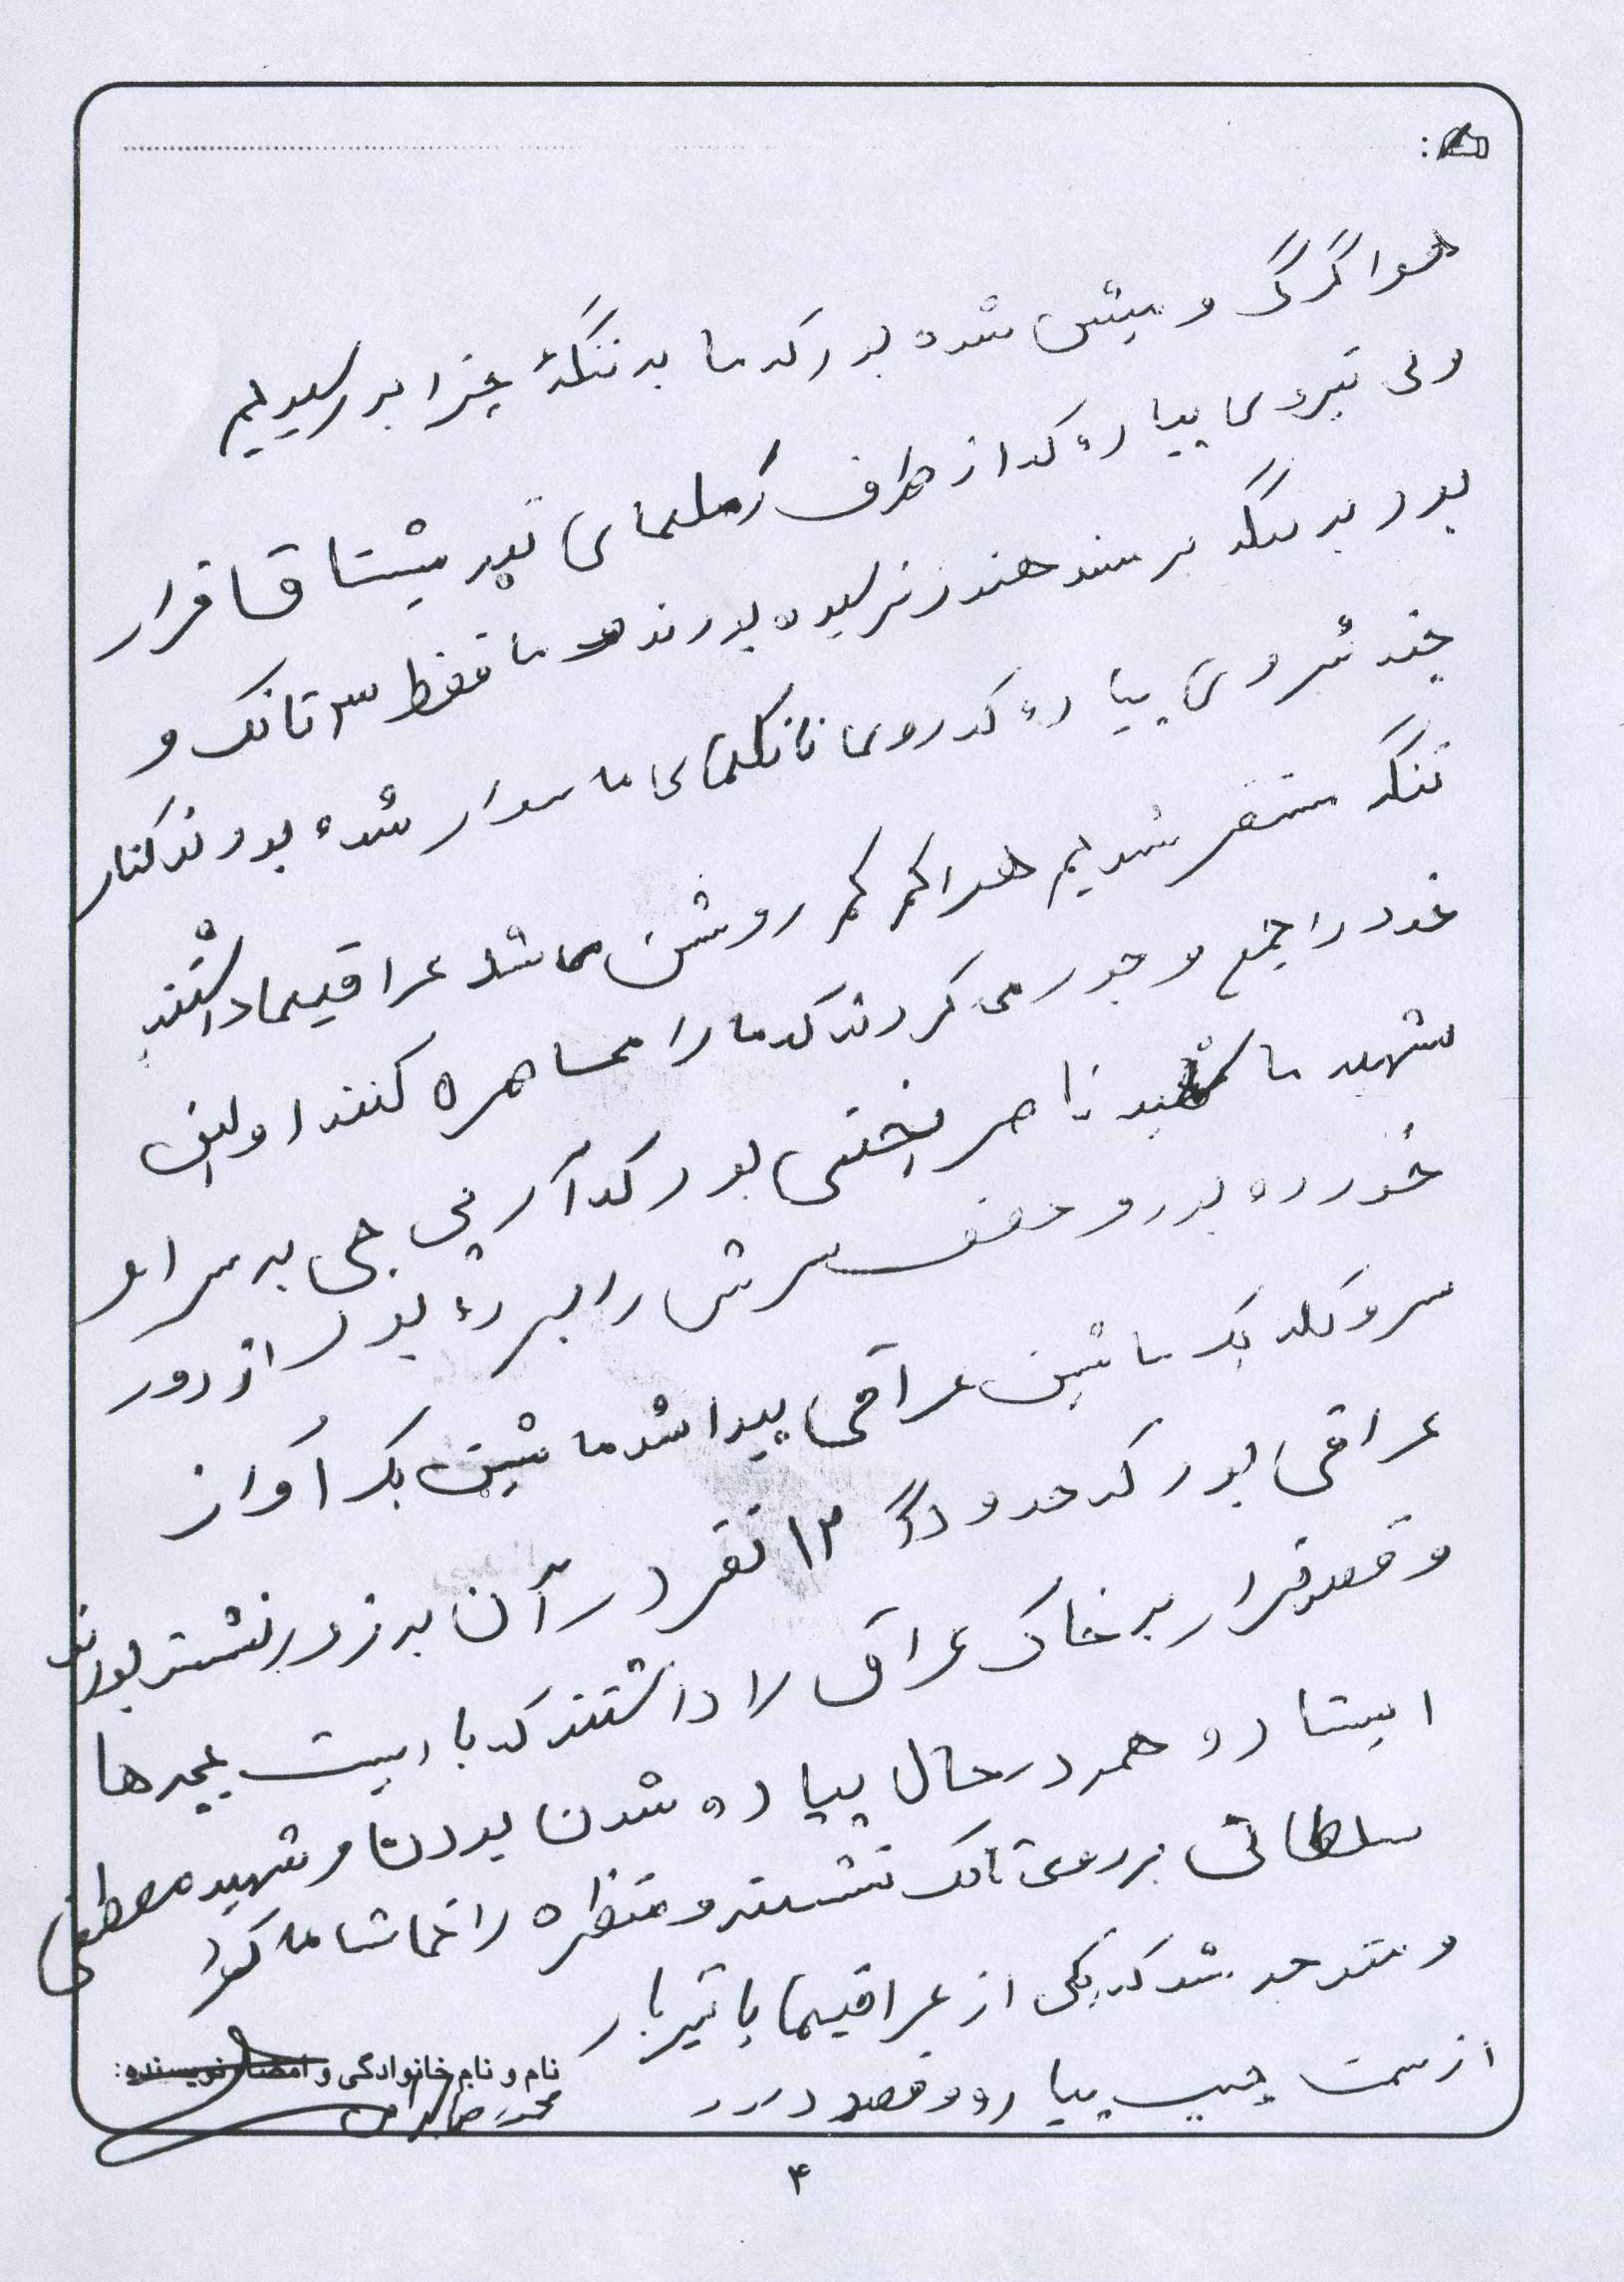 هوا گرگ و میش شده بود که ما به تنگهٔ چزابه رسیدیم
ولی نیروی پیاده که از طرف رملهای تپه میشتاق قرار
بود به تنگه برسند هنوز نرسیده بودند و ما فقط ۳ تانک و
چند نیروی پیاده که روی تانکهای ما سوار شده بودند کنار
تنگه مستقر شدیم هوا کم کم روشن می شد عراقیها داشتند
خود را جمع و جور می کردند که ما را محاصره کنند اولین
شهید ما شهید ناصر بختی بود که آر پی جی به سر او
خورده بود و نصف سرش را برده بود از دور
سر و کله یک ماشین عراقی پیدا شد ماشین یک آواز
عراقی بود که حدود ۱۲ نفر در آن به زور نشسته بودند
و قصد فرار به خاک عراق را داشتند که با ایست بچه ها
ایستاد و همه در حال پیاده شدن بودند شهید مصطفی
سلطانی بر روی تانک نشسته و منظره را تماشا می کرد
و متوجه شد که یکی از عراقیها با تیربار
از سمت چپ پیاده و قصد دارد
نام و نام خانوادگی و امضاء نویسنده:
۴